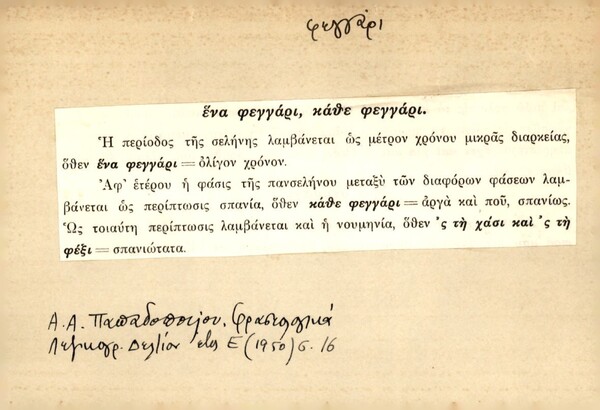 φεγγάρι
ἕνα φεγγάρι, κάθε φεγγάρι.
Ἡ περίοδος τῆς σελήνης λαμβάνεται ὡς μέτρον χρόνου μικρᾶς διαρκείας,
ὅθεν ἕνα φεγγάρι = ὀλίγον χρόνον.
Ἀφ' ἑτέρου ἡ φάσις τῆς πανσελήνου μεταξὺ τῶν διαφόρων φάσεων λαμ-
βάνεται ὡς περίπτωσις σπανία, ὅθεν κάθε φεγγάρι = ἀργὰ καὶ ποῦ, σπανίως.
Ὡς τοιαύτη περίπτωσις λαμβάνεται καὶ ἡ νουμηνία, ὅθεν 'ς τὴ χάσι καὶ 'ς τὴ
φέξι = σπανιώτατα.
Α. Α. Παπαδοπούλου. Φρασεολογικά
Λεξικογρ. Δελτίον ἔτος Ε (1950) σ. 16